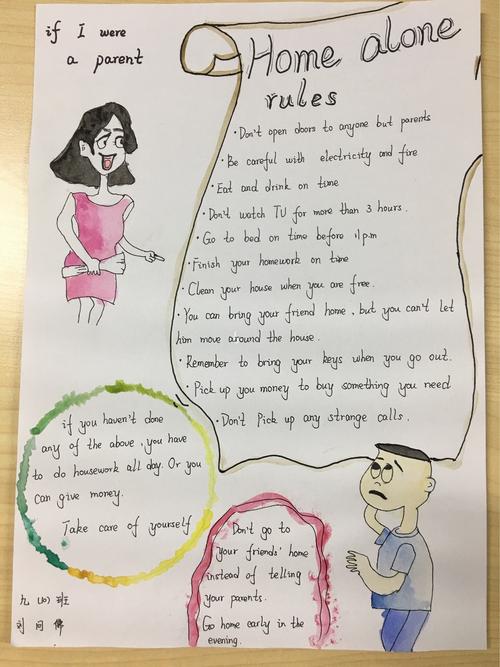 if I were
a parent
Home alone
rules
·Don't open doors to anyone but parents
·Be careful with electricity and fire
·Eat and drink on time
·Don't watch TV for more than 3 hours.
·Go to bed on time before 11 p.m
·Finish your homework on time
·Clean your house when you are free.
·You can bring your friend home, but you can't let
him move around the house.
·Remember to bring your keys when you go out.
·Pick up you money to buy something you need
·Don't Pick up any strange calls.
if you haven't done
any of the above, you have
to do housework all day. Or you
can give money.
Take care of yourself
Don't go to
your friends' home
instead of telling
your parents.
Go home early in the
evening.
九(10)班
刘同